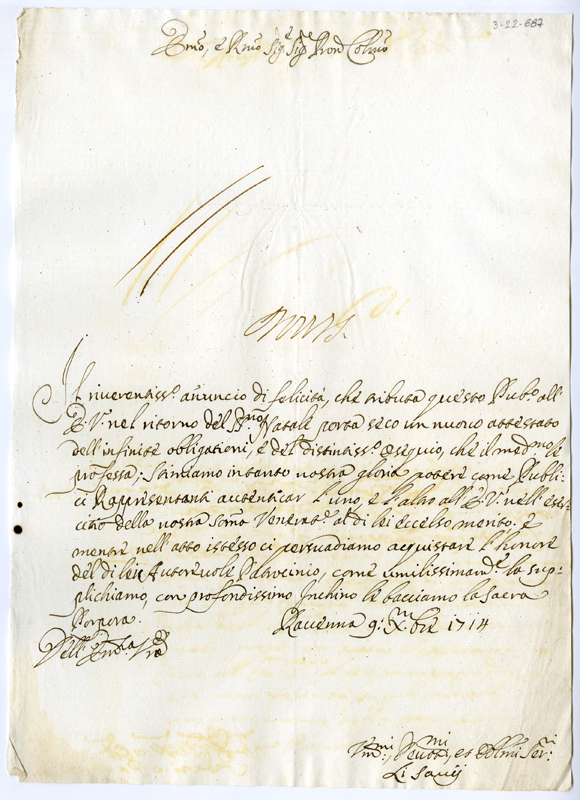 3-22-687
Em̃o, e R̃mo Sig.r Sig.r Pron̄ Col̃mo
Il riverentiss.o annuncio di felicità, che tributa questo Pub.co all'
E. V. nel ritorno del S.mo Natale porta seco un nuovo attestato
dell'infinite obligationi, e del distintiss.o ossequio, che il med.mo le
professa; Stimiamo intanto nostra gloria potere come Publi-
ci Rapresentanti autenticar l'uno, e l'altro all'E. V. nell'eser-
citio della nostra som̃a Venerat.e al di lei eccelso merito. E
mentre nell'atto istesso ci persuadiamo acquistare l'honore
del di lei Autorevole Patrocinio, come umilissimam.te la sup-
plichiamo, con profondissimo Inchino le bacciamo la Sacra
Porpora. Ravenna 9: X.bre 1714
Dell' Em.za V.ra
V.mi, Devot.mi, et Obl.mi Ser.ri
Li Savij